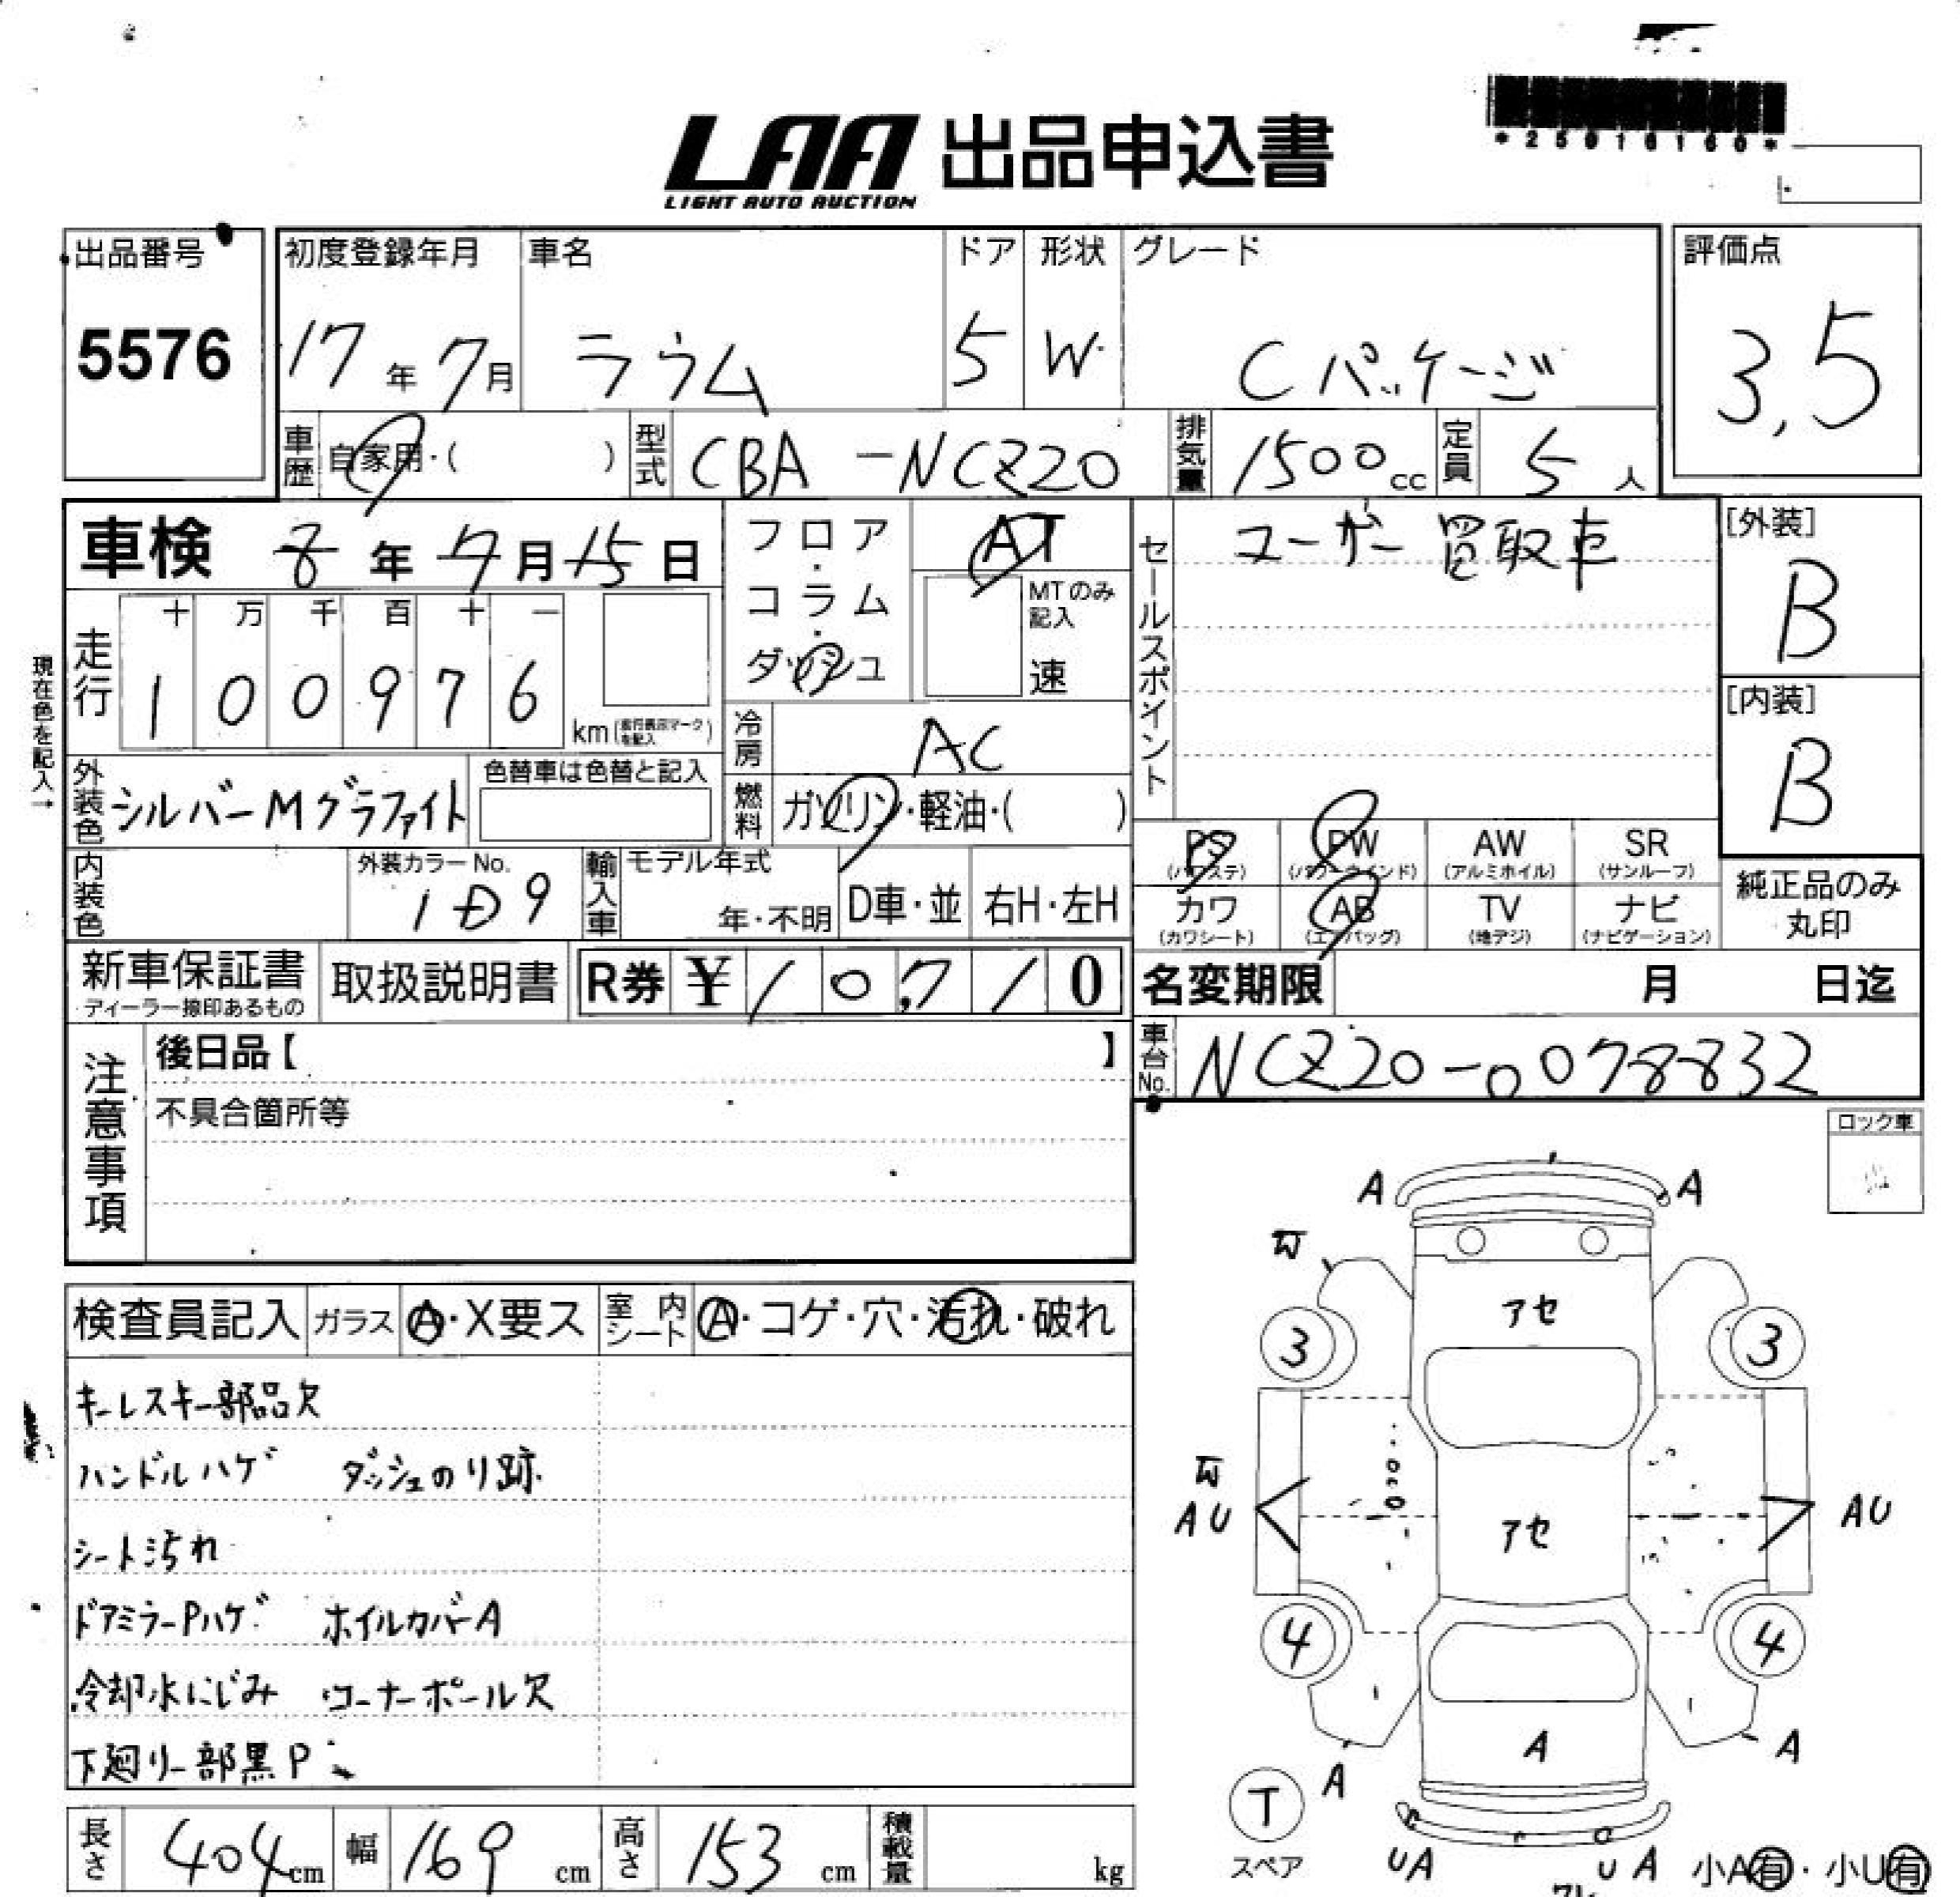 LAA 出品申込書
LIGHT AUTO AUCTION
*25016160*
出品番号
5576
初度登録年月
17年7月
車名
ラウム
ドア
5
形状
W
グレード
Cパッケージ
評価点
3,5
車歴
自家用・( )
型式
CBA-NCZ20
排気量
1500cc
定員
5人
車検 8年7月15日
フロア・コラム・ダッシュ
AT
MTのみ記入
速
セールスポイント
ユーザー買取車
[外装]
B
[内装]
B
現在色を記入→
走行
十 万 千 百 十 一
1 0 0 9 7 6
km
冷房
AC
外装色
シルバーMグラファイト
色替車は色替と記入
燃料
ガソリン・軽油・( )
PS
(パワステ)
PW
(パワーウインド)
AW
(アルミホイル)
SR
(サンルーフ)
カワ
(カワシート)
AB
(エアバッグ)
TV
(地デジ)
ナビ
(ナビゲーション)
純正品のみ丸印
内装色
外装カラーNo.
1D9
輸入車
モデル年式
年・不明
D車・並
右H・左H
新車保証書
ディーラー捺印あるもの
取扱説明書
R券 ¥10,710
名変期限 月 日迄
車台No.
NCZ20-0078832
注意事項
後日品【 】
不具合箇所等
ロック車
検査員記入
ガラス
A・X要ス
室内シート
A・コゲ・穴・汚れ・破れ
キーレスキー部品欠
ハンドルハゲ ダッシュのり跡
シート汚れ
ドアミラーPハゲ ホイルカバーA
冷却水にじみ コーナーポール欠
下廻り一部黒P
A A
アセ
3 3
AU アセ AU
4 4
A
A A
T
スペア
UA UA
小A有・小U有
長さ 404cm
幅 169cm
高さ 153cm
積載量 kg